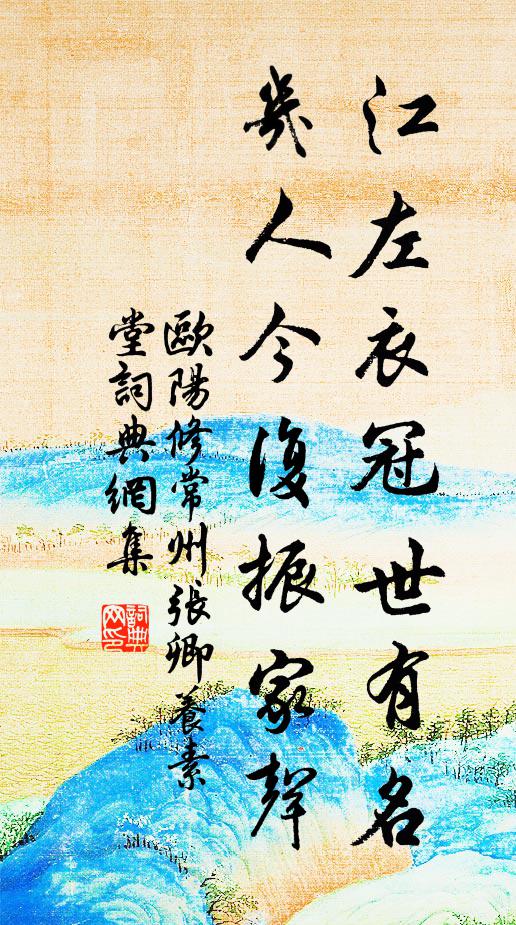 江左衣冠世有名
幾人今復振家聲
歐陽修常州張卿養素
堂詞典網集
詞典
网印